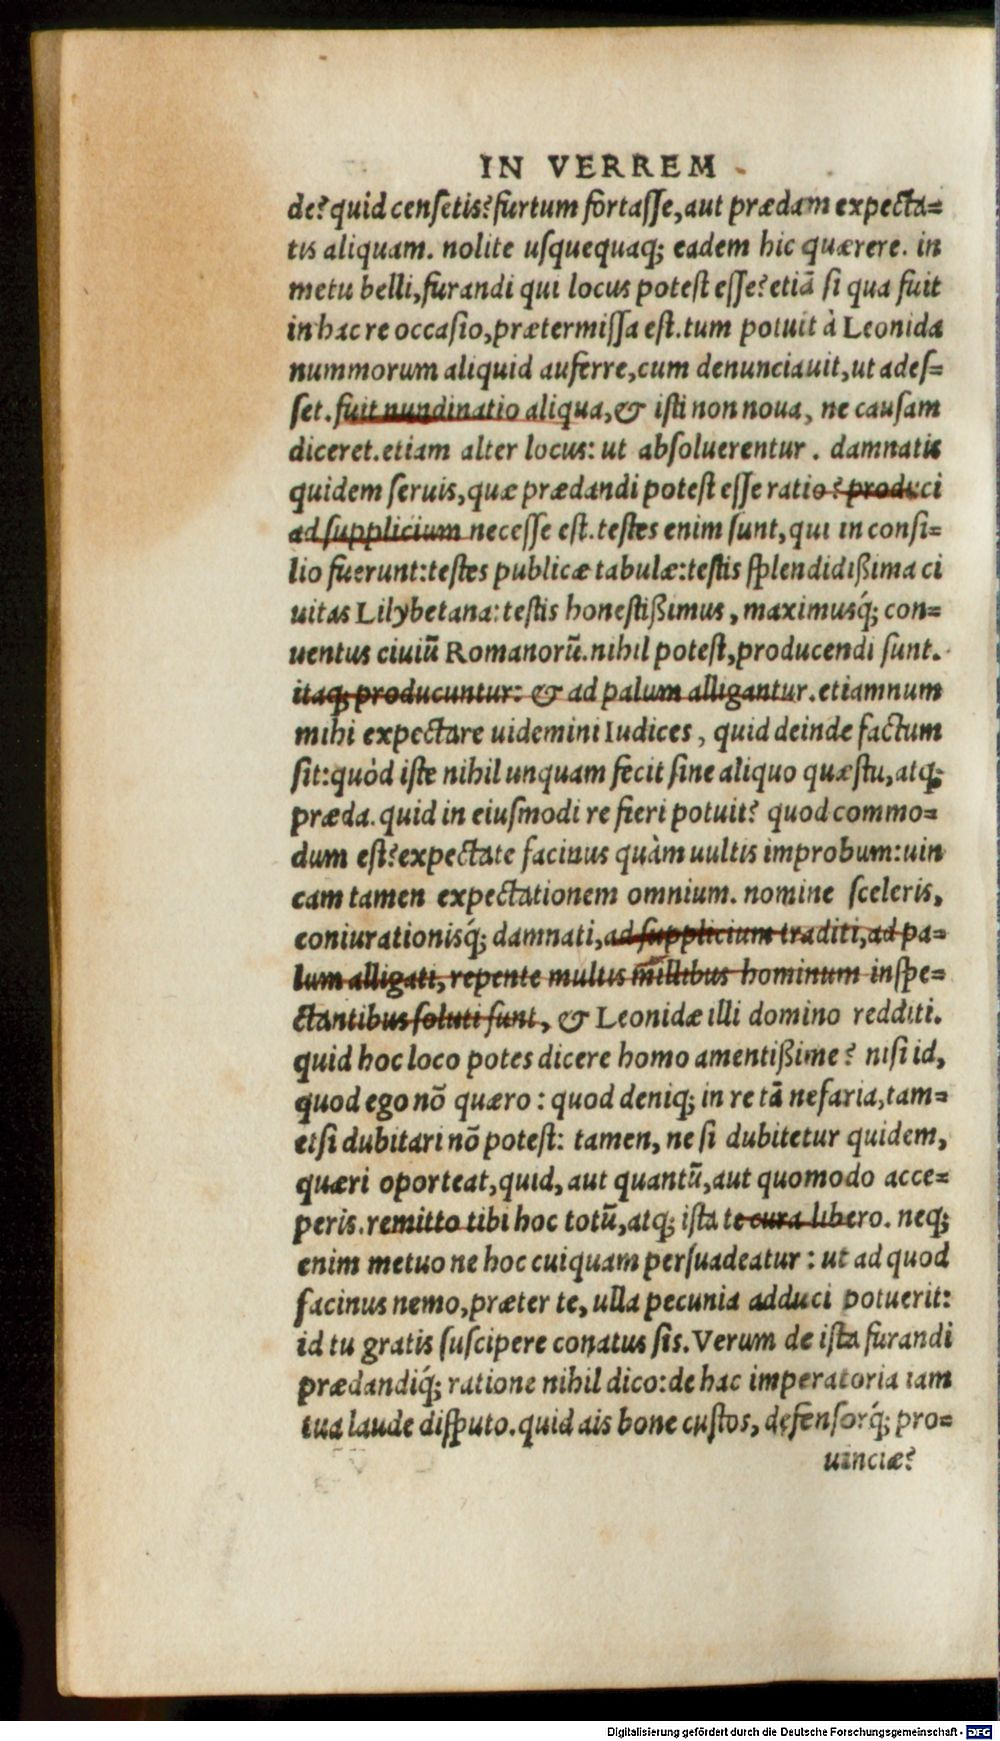 IN VERREM
de? quid censetis? furtum fortasse, aut prædam expecta=
tis aliquam. nolite usquequaq; eadem hic quærere. in
metu belli, furandi qui locus potest esse? etiã si qua fuit
in hac re occasio, prætermissa est. tum potuit à Leonida
nummorum aliquid auferre, cum denunciauit, ut ades=
set. fuit nundinatio aliqua, & isti non noua, ne causam
diceret. etiam alter locus: ut absoluerentur. damnatis
quidem seruis, quæ prædandi potest esse ratio? produci
ad supplicium necesse est. testes enim sunt, qui in consi=
lio fuerunt: testes publicæ tabulæ: testis splendidißima ci
uitas Lilybetana: testis honestißimus, maximusq́; con=
uentus ciuiũ Romanorũ. nihil potest, producendi sunt.
itaq; producuntur: & ad palum alligantur. etiamnum
mihi expectare uidemini Iudices, quid deinde factum
sit: quòd iste nihil unquam fecit sine aliquo quæstu, atq;
præda. quid in eiusmodi re fieri potuit? quod commo=
dum est? expectate facinus quàm uultis improbum: uin
cam tamen expectationem omnium. nomine sceleris,
coniurationisq́; damnati, ad supplicium traditi, ad pa=
lum alligati, repente multis millibus hominum inspe=
ctantibus soluti sunt, & Leonidæ illi domino redditi.
quid hoc loco potes dicere homo amentißime? nisi id,
quod ego nõ quæro: quod deniq; in re tã nefaria, tam=
etsi dubitari nõ potest: tamen, ne si dubitetur quidem,
quæri oporteat, quid, aut quantũ, aut quomodo acce=
peris. remitto tibi hoc totũ, atq; ista te cura libero. neq;
enim metuo ne hoc cuiquam persuadeatur: ut ad quod
facinus nemo, præter te, ulla pecunia adduci potuerit:
id tu gratis suscipere conatus sis. Verum de ista furandi
prædandiq́; ratione nihil dico: de hac imperatoria iam
tua laude disputo. quid ais bone custos, defensorq́; pro=
uinciæ?
Digitalisierung gefördert durch die Deutsche Forschungsgemeinschaft - DFG